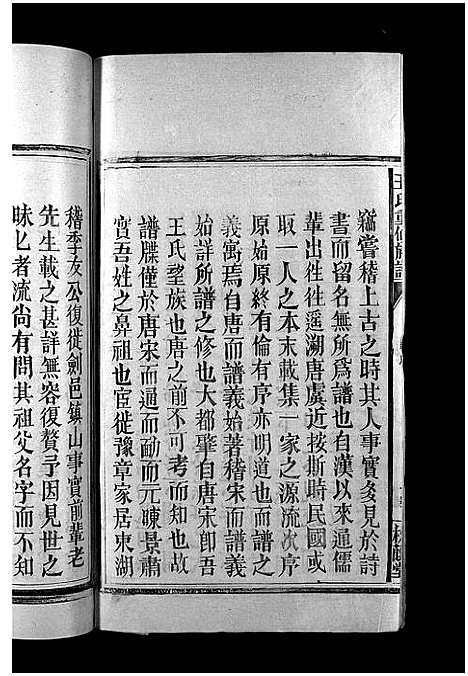 王氏重修族譜
竊嘗稽上古之時其人事實多見於詩
書而留名無所爲譜也自漢以來通儒
輩出徃徃遥溯唐虞近按斯時民國或
取一人之本末載集一家之源流次序
原始原終有倫有序亦明道也而譜之
義寓焉自唐而譜義始著稽宋而譜義
始詳所譜之修也大都肇自唐宋卽吾
王氏望族也唐之前不可考而知也故
譜牒僅於唐宋而逼而勔而元暕景肅
實吾姓之鼻祖也宦徙豫章家居東湖
稽季友公復徙劍邑鎮山事實前輩老
先生載之甚詳無容復贅予因見世之
昧乚者流尚有問其祖父名字而不知